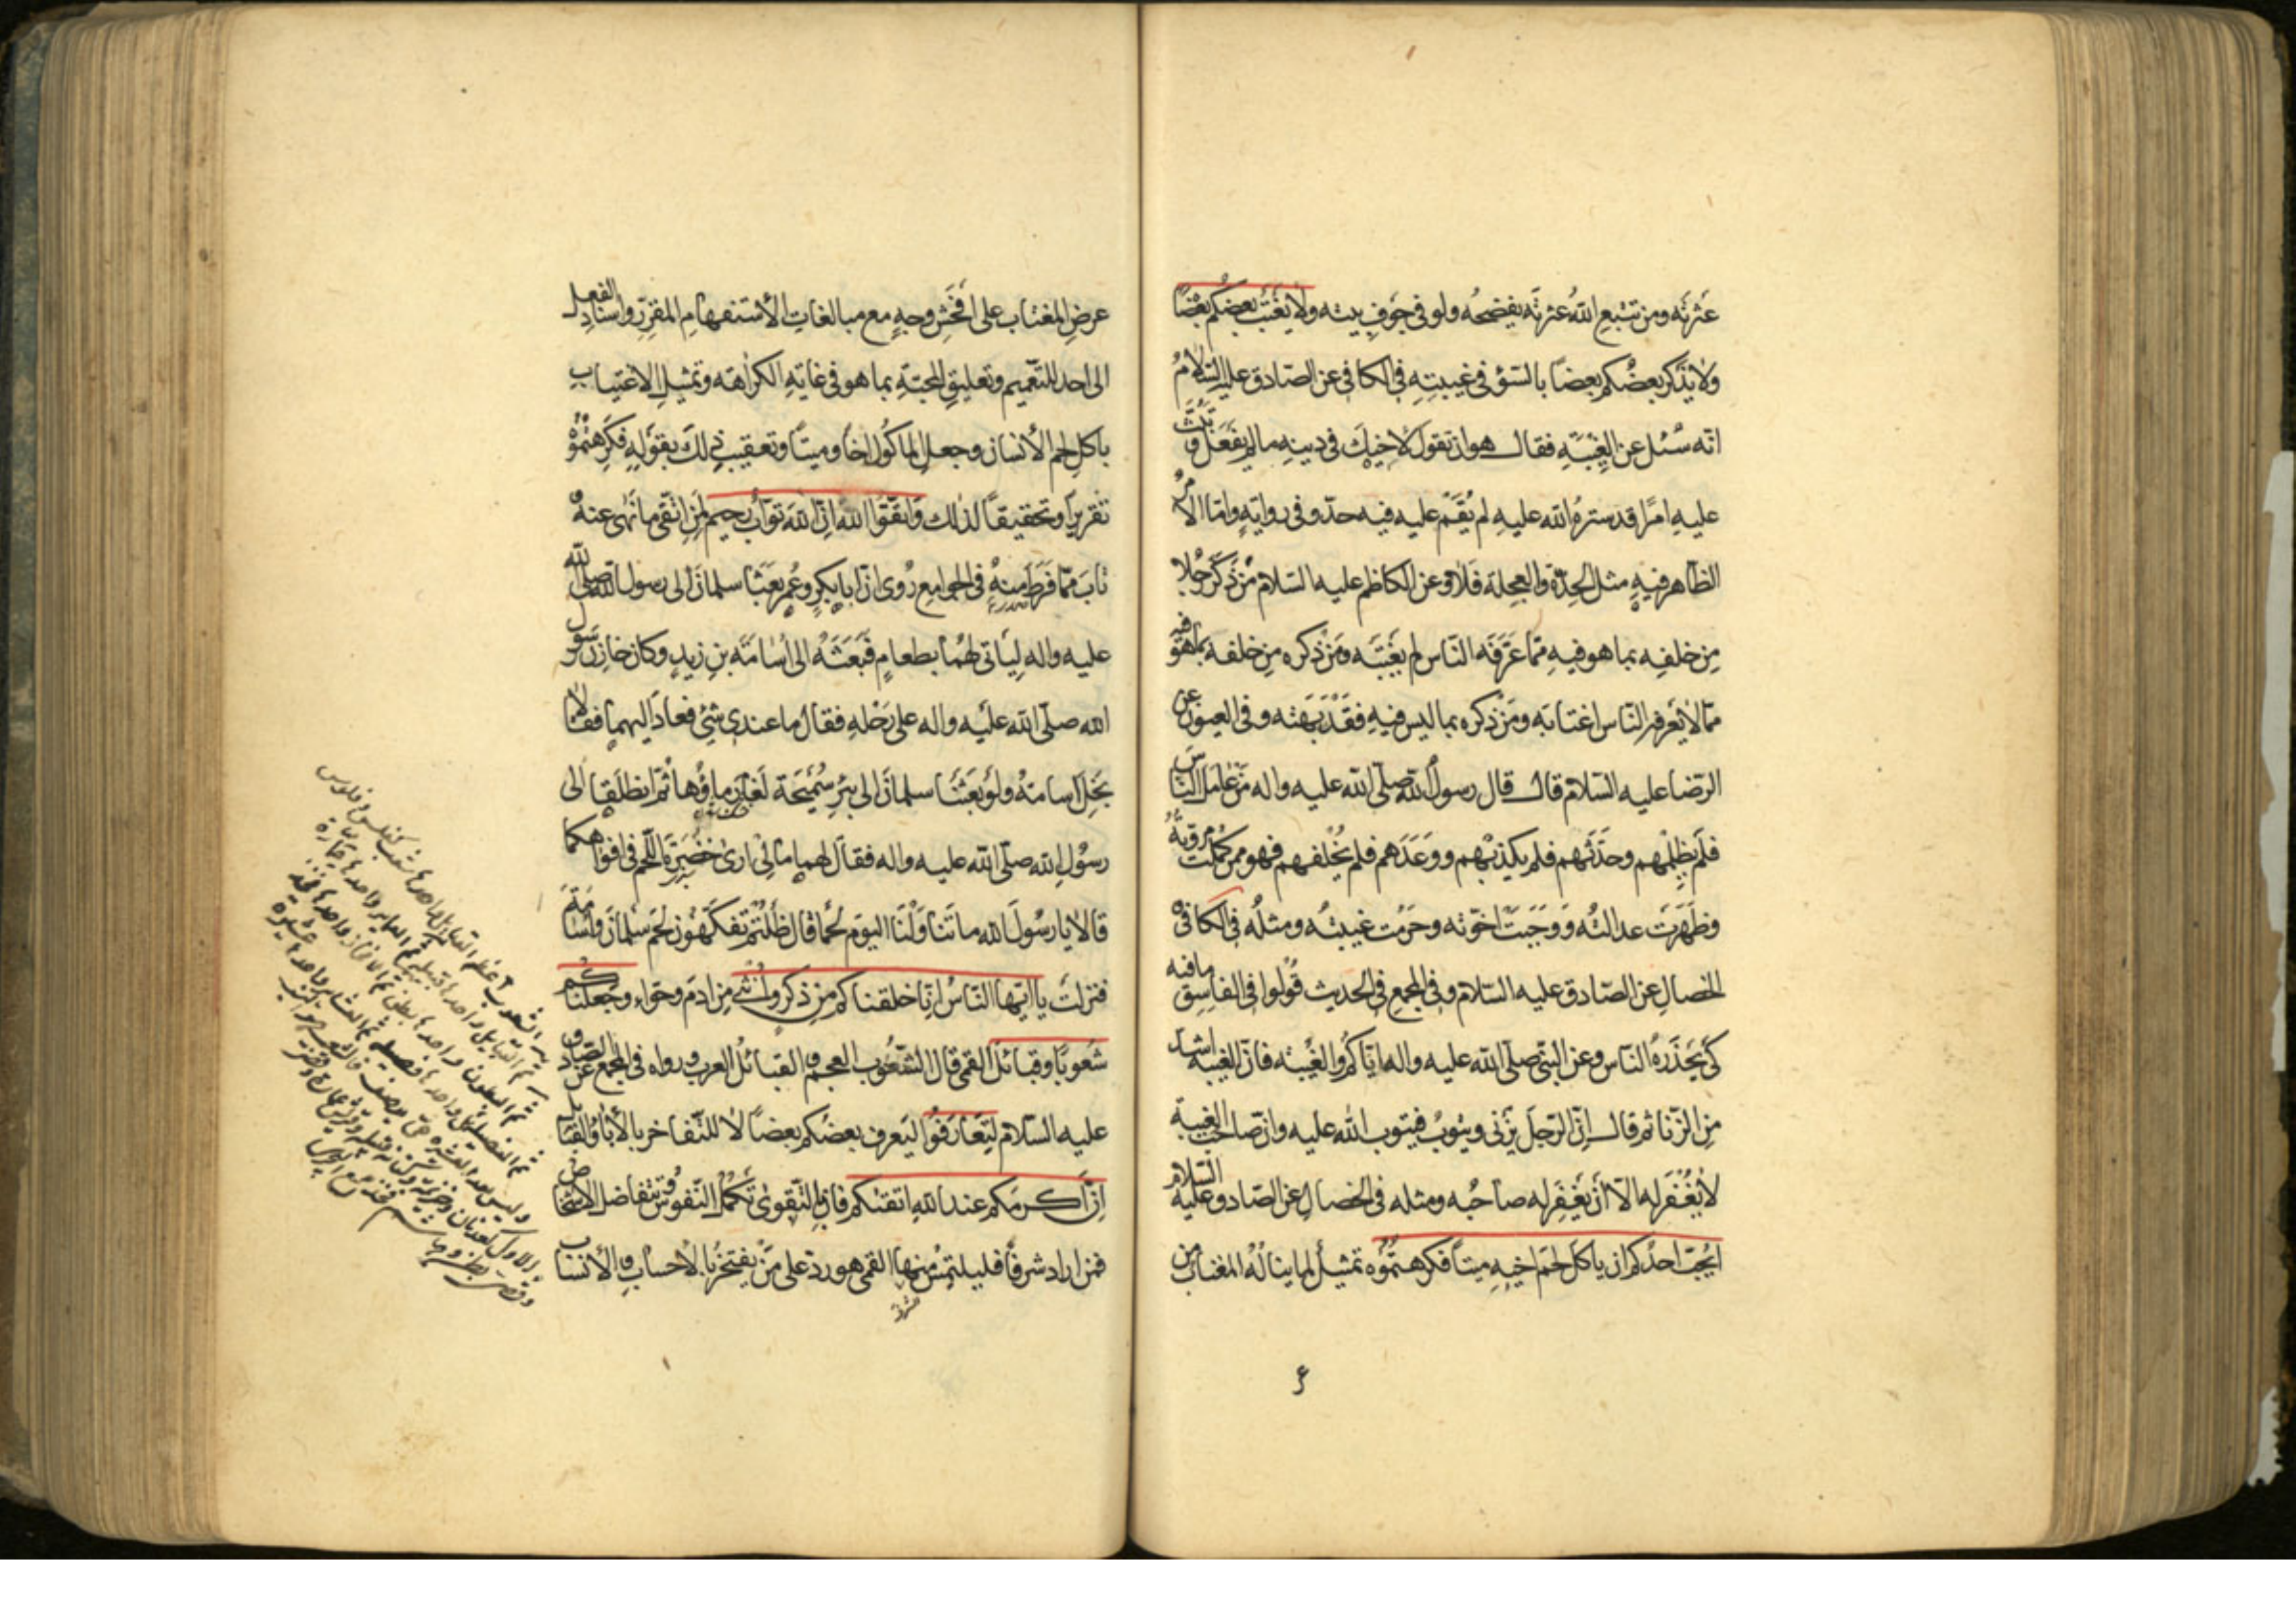 عَثرتَه ومن تتبعِ اللهُ عثرتَه يفضحُه ولو في جَوفِ بيته ولا يَغتَبْ بعضُكم بعضًا
ولا يَذكر بعضُكم بعضًا بالسّوْءِ في غيبتِهِ في الكافي عن الصّادق عليه السّلامُ
انّه سُئل عن الغِيبَةِ فقال هو ان تقول لاخيكَ في دينهِ ما لم يَفعَل وتَبُثَّ
عليهِ امرًا قد سترهُ الله عليهِ لم يُقَم عليه فيه حدّ وفي روايةٍ وامّا الأمرُ
الظّاهر فيهِ مثل الحِدّة والعجلة فَلا وعن الكاظم عليه السّلام مَن ذَكَر رجُلا
مِن خلفِه بما هو فيهِ ممّا عَرَفَه النّاس لم يَغتَبه ومَن ذكره مِن خلفه بما هو فيه
ممّا لا يَعرفه النّاس اغتابَه ومَن ذكره بما ليس فيهِ فقَد بَهَته وفي العيون عن
الرّضا عليه السّلام قال قال رسولُ الله صلّى الله عليه واله مَن عَامَلَ النّاسَ
فلَم يَظلِمهم وحَدّثَهم فلم يكذبْهم ووَعَدَهم فلم يُخلفهم فهو ممّن كَمُلت مروّتُهُ
وظَهَرَت عدالتُه ووَجَبَت اخوّته وحَرُمت غيبتُه ومثلُه في الكافي
الخصالِ عن الصّادق عليه السّلام وفي المجمع في الحديث قُولوا في الفاسِق ما فيه
كي يَحذَرهُ النّاس وعن النّبيّ صلّى الله عليه واله ايّاكُم والغيبَة فانّ الغيبة اشدّ
مِن الزّنا ثم قال انّ الرّجلَ يَزني ويتوبُ فيتوب الله عليه وانّ صاحب الغيبة
لا يُغْفَر له الّا أن يَغفِر له صاحبُه ومثله في الخصالِ عن الصّادق عليه السّلام
ايُحبّ احدُكم ان ياكل لحم اخيهِ ميتًا فكرهتُمُوُه تمثيل لما ينالُهُ المغتاب من
عرضِ المغتاب على افحَشِ وجهٍ مع مبالغاتِ الأستفهامِ المقرّرِ واسنادِ الفعل
الى احد للتّعميم وتعليقِ المحبّةِ بما هو في غايةِ الكراهة وتمثيلِ الاغتياب
باكلِ لحم الأنسان وجعلِ الماكُولِ اخًا وميتًا وتعقيبِ ذلكَ بقَولهِ فكَرِهتمُوُه
تقريرًا وتحقيقًا لذلك وَاتّقُوا الله انّ اللهَ توّابٌ رحيم لمَنِ اتّقى ما نُهى عنهُ
تابَ ممّا فَرَط منهُ في الجوامع رُوى انّ ابابكرٍ وعُمر بَعَثا سلمانَ الى رسول الله صلى الله
عليه واله لِيَأتى لهُما بطعامٍ فبَعَثَهُ الى اُسامَة بنِ زيدٍ وكان خازِنَ رسول
الله صلّى الله عليْه واله على رَحْلهِ فقال ما عندى شئ فعادَ اليهما فقالا
بَخِلَ اسامةُ ولَو بَعَثْنَا سلمانَ الى بئرِ سُمَيحَة لَغارَ ماؤُها ثمّ انطلَقا الى
رسُولِ الله صلّى الله عليه واله فقال لهما ما لى ارى خُضرَةَ اللّحم في افواهكما
قالا يا رسُولَ الله ما تناوَلْنَا اليَوم لحمًا قال ظَلْتُم تَفكَّهون لَحم سلمانَ واُسَامةَ
فنزلَت يا ايّها النّاسُ انّا خلقناكم مِن ذكرٍ واُنثى مِن ادمَ وحوّاء وجعلناكم
شُعوبًا وقبائلَ القمى قال الشّعُوب العجم والقبائلُ العرب ورواه في المجمع عن الصّادق
عليه السّلام لِتَعَارَفُوا ليَعرف بعضُكم بعضًا لا للتّفاخر بالأباء والقبائل
اِنّ اَكرمَكم عند اللهِ اتقٰكم فان بالتّقوى تَكمُل النّفوس وتتفاضل الاشخاص
فمن اراد شرفًا فليلتمِسْ منها القمى هو ردّ على مَن يفتخرُ بالأحسابِ والأنساب